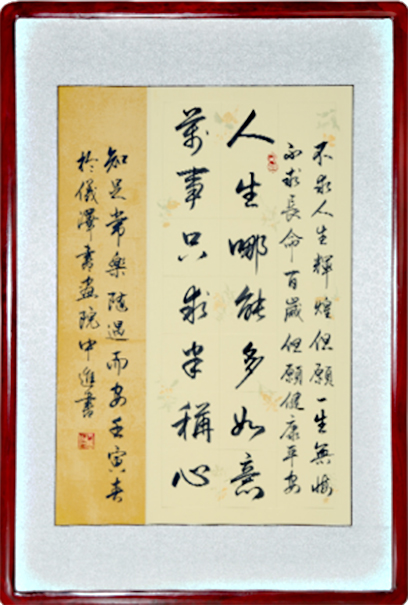 不求人生輝煌但願一生無悔
不求長命百歲但願健康平安
人生哪能多如意
萬事只求半稱心
知足常樂隨遇而安壬寅春
於儀澤書畫院中進書